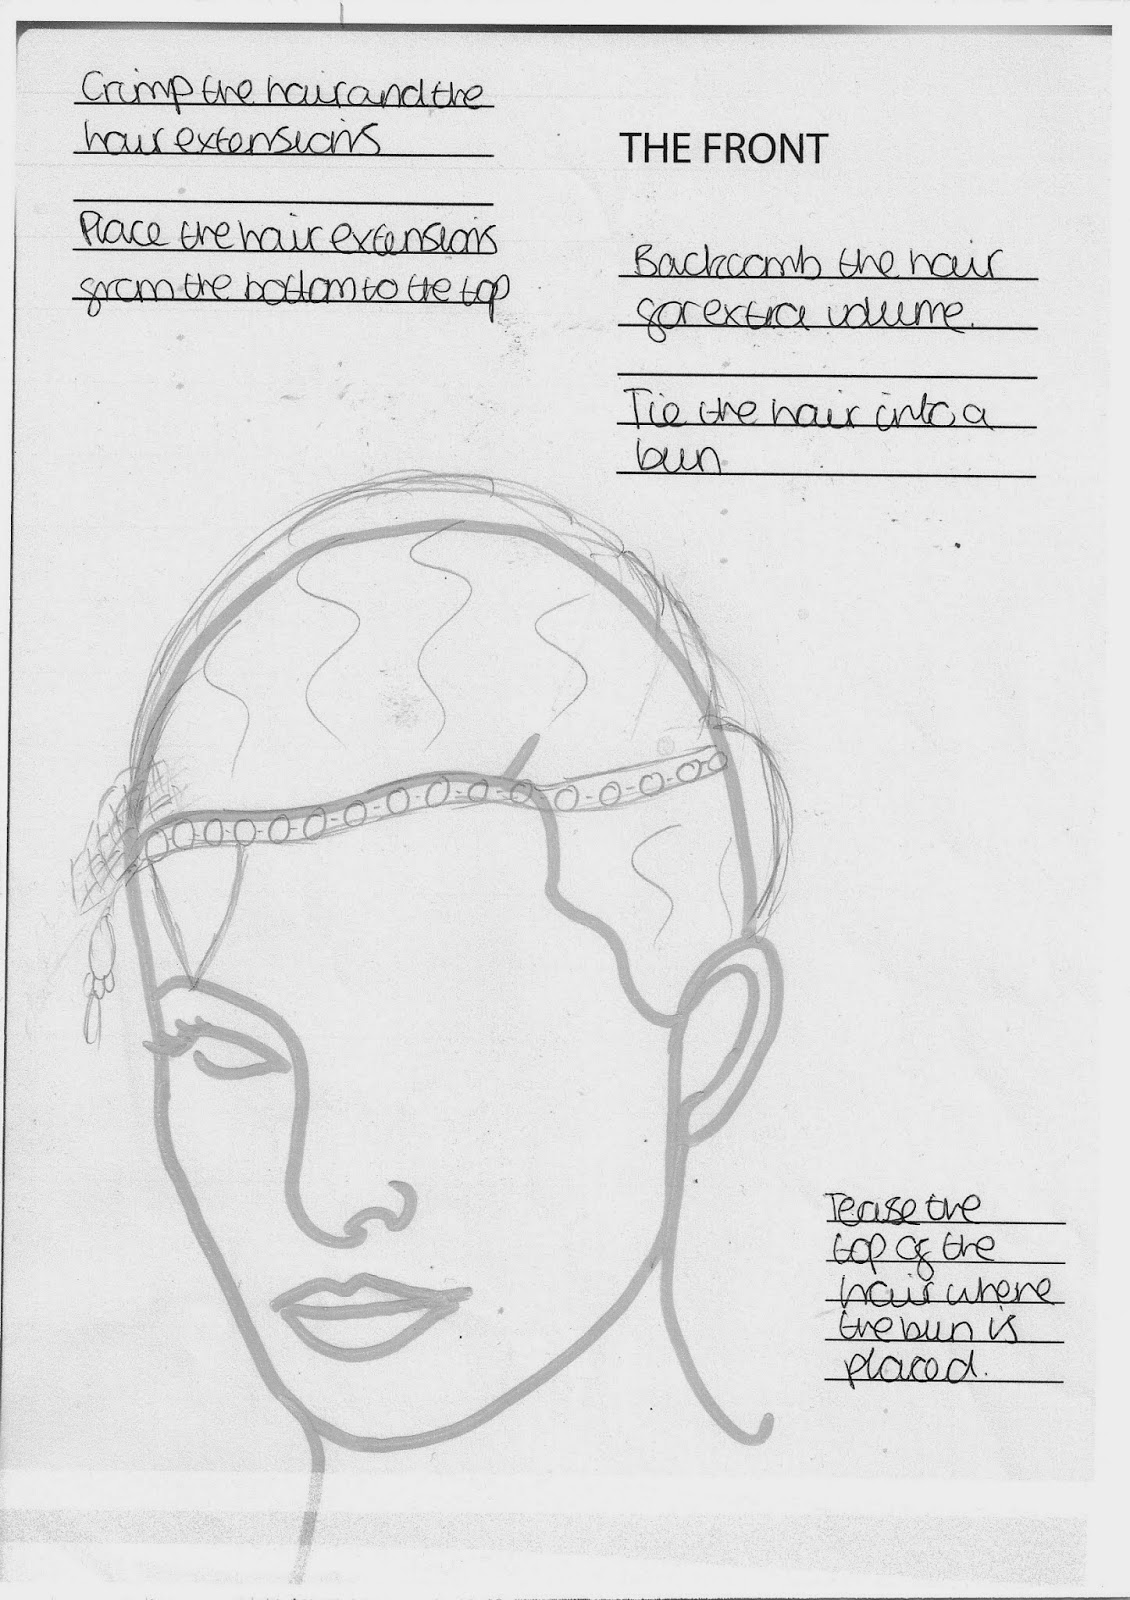 Crimp the hair and the
hair extensions
Place the hair extensions
from the bottom to the top
THE FRONT
Backcomb the hair
for extra volume.
Tie the hair into a
bun
Tease the
top of the
hair where
the bun is
placed.